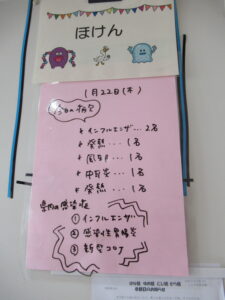 ほけん
1月22日(木)
今日の病欠
インフルエンザ...2名
発熱...1名
風邪...1名
中耳炎...1名
発熱...1名
県内の感染症
①インフルエンザ
②感染性胃腸炎
③新型コロナ